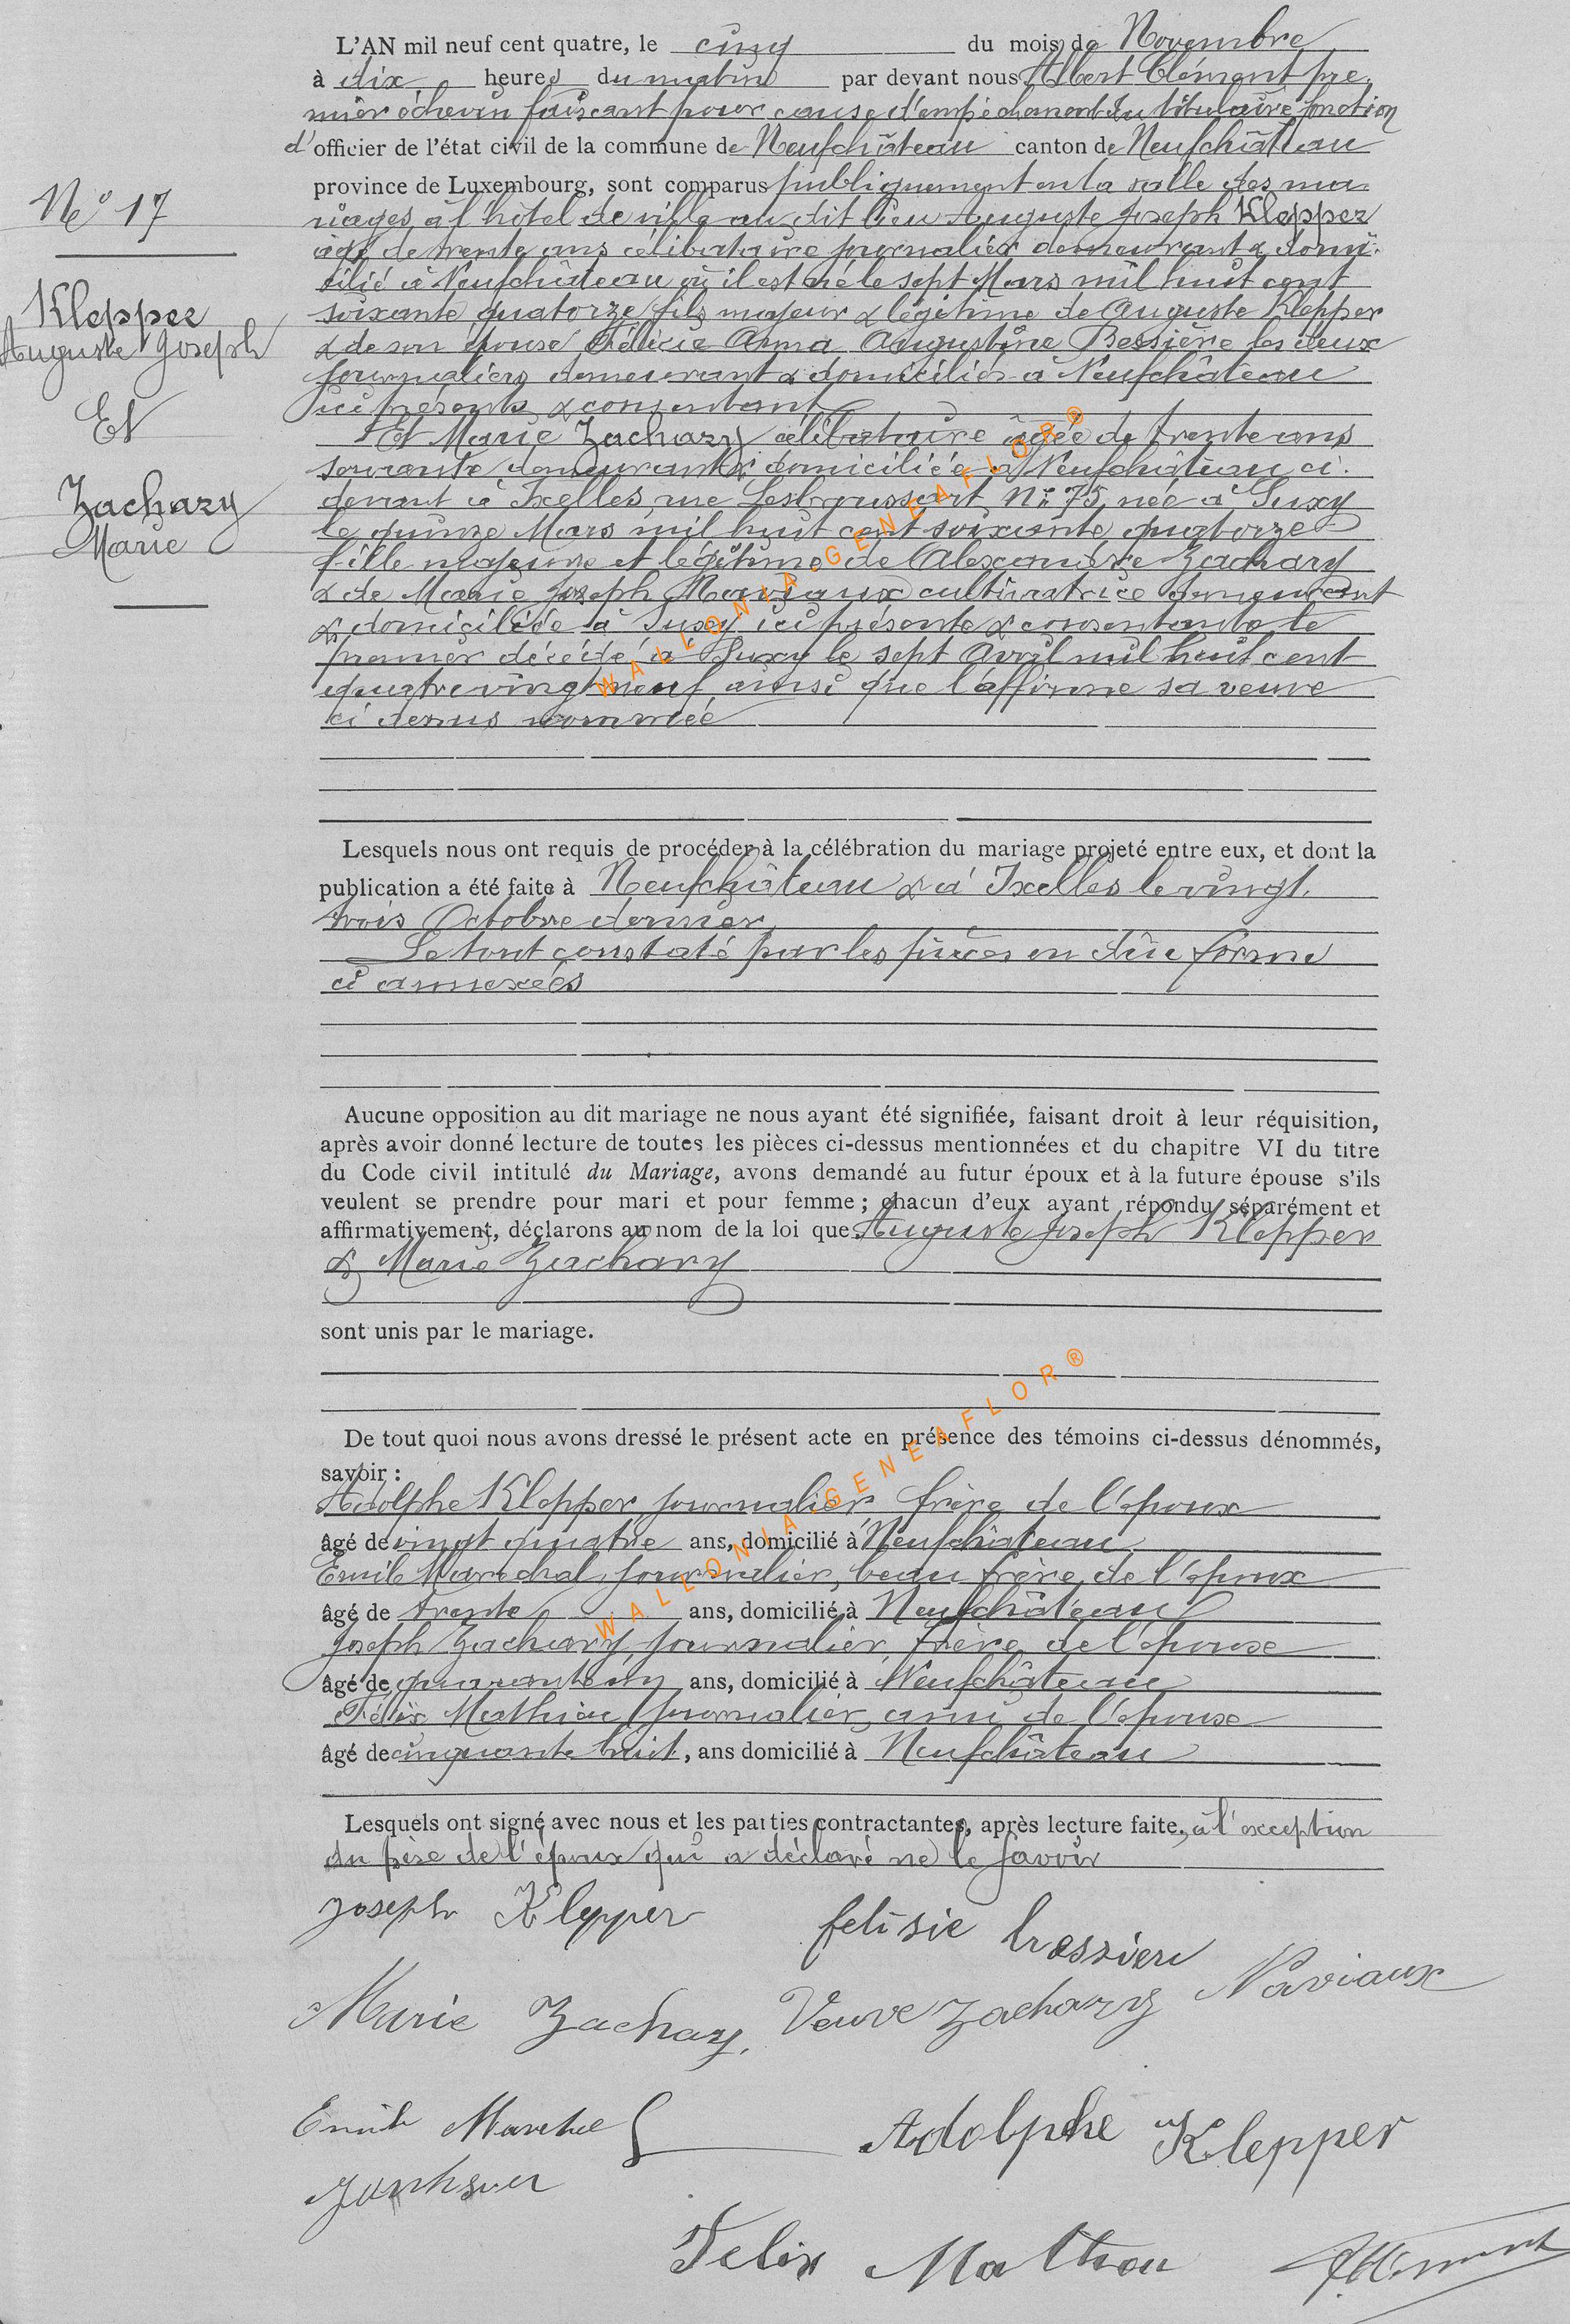 L'AN mil neuf cent quatre, le cinq du mois de Novembre
à dix heures du matin par devant nous Albert Clément pre-
mier échevin faisant pour cause d'empêchement du titulaire fonction
d'officier de l'état civil de la commune de Neufchâteau canton de Neufchâteau
province de Luxembourg, sont comparus publiquement en la salle des ma-
N° 17
riages à l'hôtel de ville au dit lieu Auguste Joseph Klepper
âgé de trente ans célibataire journalier demeurant & domi-
cilié à Neufchâteau où il est né le sept Mars mil huit cent
Klepper
soixante quatorze fils majeur & légitime de Auguste Klepper
Auguste Joseph
& de son épouse Félicie Anna Augustine Bessière les deux
journaliers demeurant & domiciliés à Neufchâteau
Et
ici présents & consentant
Et Marie Zachary célibataire âgée de trente ans
servante demeurant & domiciliée à Neufchâteau ci-
Zachary
devant à Ixelles rue Lesbroussart N° 75, née à Suxy
Marie
le quinze Mars mil huit cent soixante quatorze
fille majeure et légitime de Alexandre Zachary
& de Marie Joseph Naviaux cultivatrice demeurant
& domiciliée à Suxy ici présente & consentante le
premier décédé à Suxy le sept Avril mil huit cent
quatre vingt neuf ainsi que l'affirme sa veuve
ci dessus nommée
WALLONIA-GENEAFLOR®
Lesquels nous ont requis de procéder à la célébration du mariage projeté entre eux, et dont la
publication a été faite à Neufchâteau & à Ixelles le vingt
trois Octobre dernier
Le tout constaté par les pièces en due forme
ci annexées
Aucune opposition au dit mariage ne nous ayant été signifiée, faisant droit à leur réquisition,
après avoir donné lecture de toutes les pièces ci-dessus mentionnées et du chapitre VI du titre
du Code civil intitulé du Mariage, avons demandé au futur époux et à la future épouse s'ils
veulent se prendre pour mari et pour femme ; chacun d'eux ayant répondu séparément et
affirmativement, déclarons au nom de la loi que Auguste Joseph Klepper
& Marie Zachary
sont unis par le mariage.
WALLONIA-GENEAFLOR®
De tout quoi nous avons dressé le présent acte en présence des témoins ci-dessus dénommés,
savoir :
Adolphe Klepper journalier, frère de l'époux
âgé de vingt quatre ans, domicilié à Neufchâteau
Emile Maréchal, journalier, beau frère de l'époux
âgé de trente ans, domicilié à Neufchâteau
Joseph Zachary, journalier, frère de l'épouse
âgé de ans, domicilié à Neufchâteau
Félix Mathieu journalier, ami de l'épouse
âgé de cinquante huit, ans domicilié à Neufchâteau
Lesquels ont signé avec nous et les parties contractantes, après lecture faite, à l'exception
du père de l'époux qui a déclaré ne le savoir
Joseph Klepper
felisie bressiere
Marie Zachary, Veuve Zachary Naviaux
Emile
Adolphe Klepper
Felix